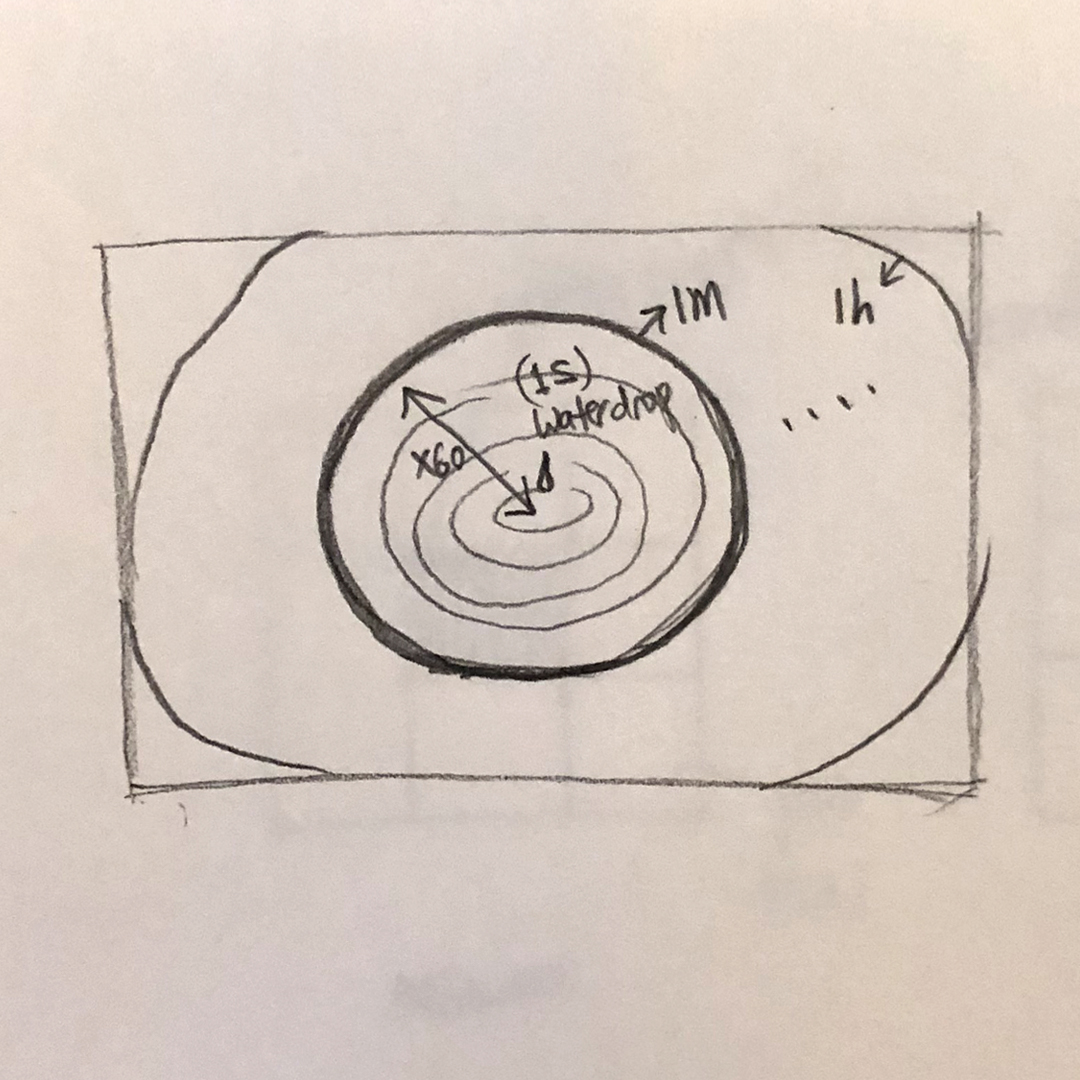 1M
1h
(1S)
Waterdrop
X60